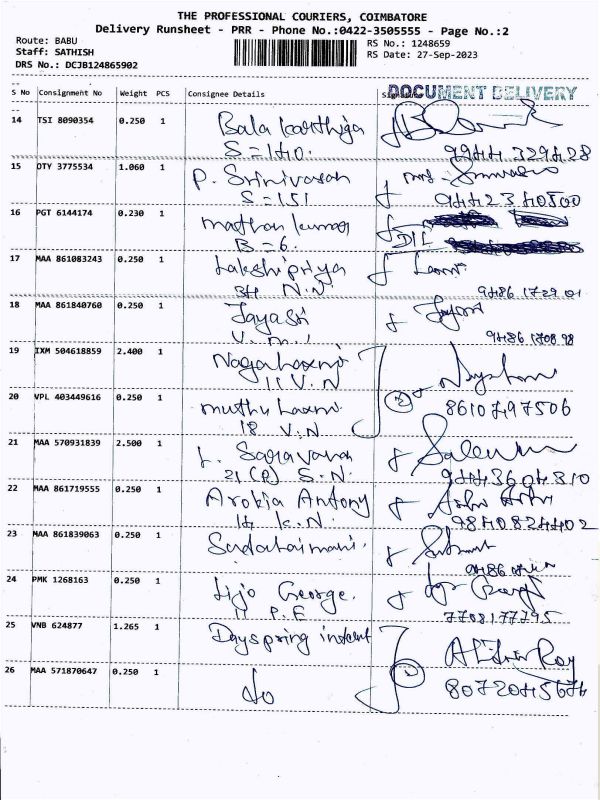 THE PROFESSIONAL COURIERS, COIMBATORE
Delivery Runsheet - PRR - Phone No.:0422-3505555 - Page No.:2
Route: BABU
Staff: SATHISH
DRS No.: DCJB124865902
RS No.: 1248659
RS Date: 27-Sep-2023
DOCUMENT DELIVERY
S No Consignment No Weight PCS Consignee Details Signature
14 TSI 8090354 0.250 1 Bala karthiga
S = 140. 99444 329428
15 DTY 3775534 1.060 1 P. Srinivasan
S = 151 94423 40800
16 PGT 6144174 0.230 1 mathan kumar
B = 6. DIL
17 MAA 861083243 0.250 1 Lakshipriya
34 N.N 9486 1729 01
18 MAA 861840760 0.250 1 Jayasri
V.M.1 9486 1708 98
19 IXM 504618859 2.400 1 Nagalaxmi
11 V.N
20 VPL 403449616 0.250 1 muthu laxmi 2
18 V.N 8610497506
21 MAA 570931839 2.500 1 L. Saravana
21 (P) S.N. 9443604310
22 MAA 861719555 0.250 1 Arokia Antony
14 K.N. 9840824402
23 MAA 861839063 0.250 1 Sadataimani.
24 PMK 1268163 0.250 1 Lijo George.
11 P.F 7708177795
25 VNB 624877 1.265 1 Dayspring
26 MAA 571870647 0.250 1 do 2
8072045674